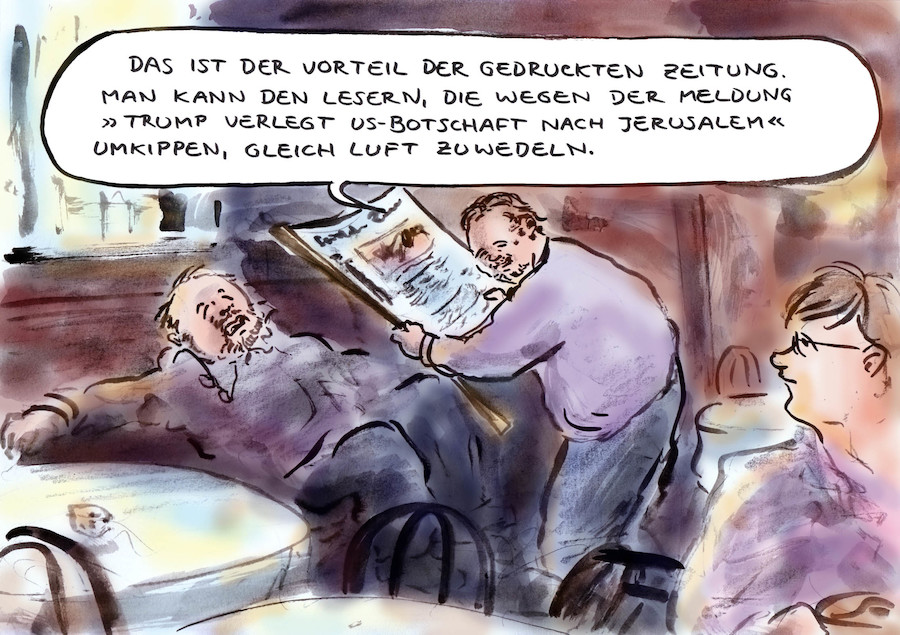 DAS IST DER VORTEIL DER GEDRUCKTEN ZEITUNG.
MAN KANN DEN LESERN, DIE WEGEN DER MELDUNG
»TRUMP VERLEGT US-BOTSCHAFT NACH JERUSALEM«
UMKIPPEN, GLEICH LUFT ZUWEDELN.